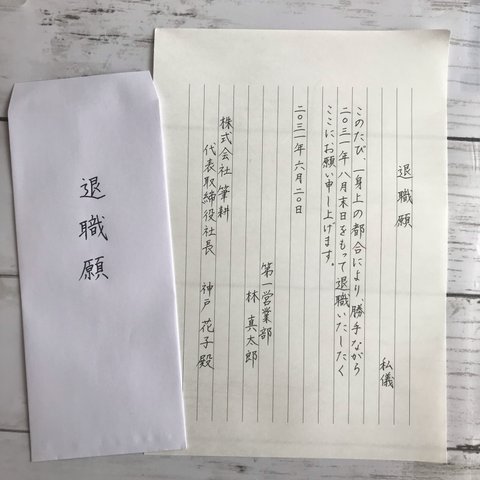 退職願
退職願
私儀
このたび、一身上の都合により、勝手ながら
二〇三一年八月末日をもって退職いたしたく
ここにお願い申し上げます。
二〇三一年六月二〇日
第一営業部
林真太郎
株式会社筆耕
代表取締役社長 神戸花子殿